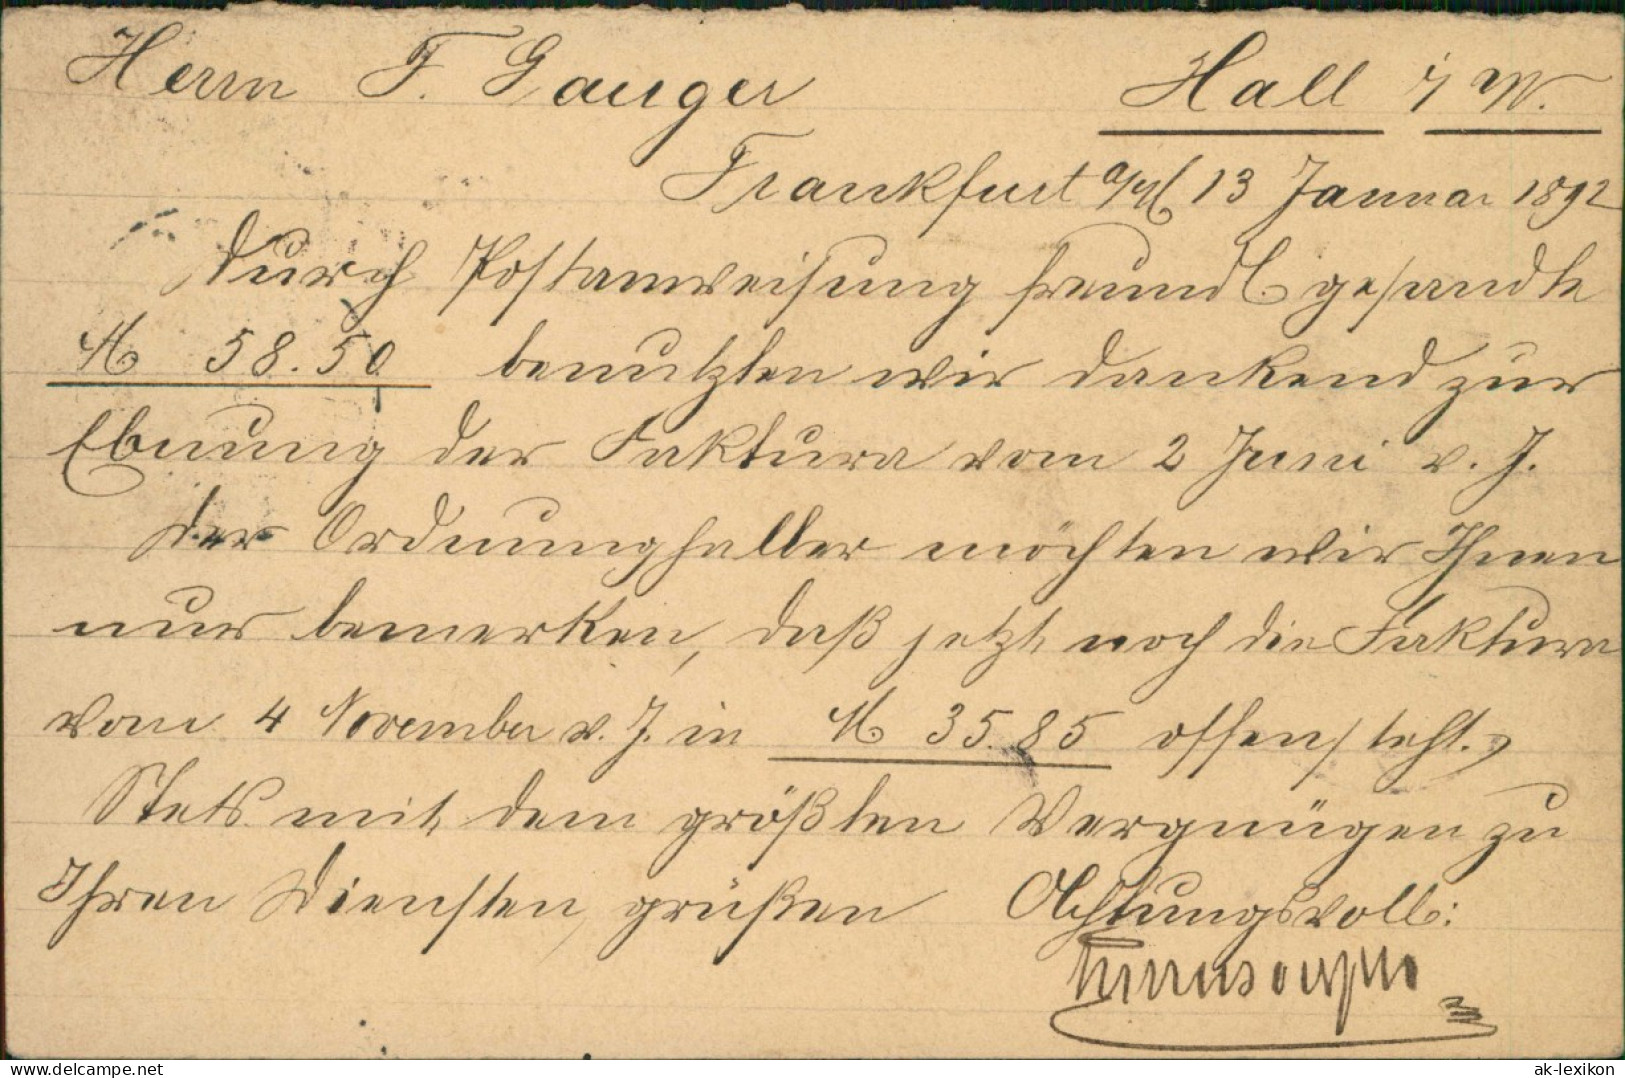 Herrn F. Gauger Hall i/W.
Frankfurt a/M 13 Januar 1892
Durch Postanweisung freundl gesandte
M 58.50 benutzten wir dankend zur
Ebnung der Faktura vom 2 Juni v. J.
Der Ordnung halber möchten wir Ihnen
nur bemerken, daß jetzt noch die Faktura
vom 4 November v. J. in M 35.85 offen steht.
Stets mit dem größten Vergnügen zu
Ihren Diensten, grüßen Achtungsvoll:
www.ansichtskarten-lexikon.de ak-lexikon